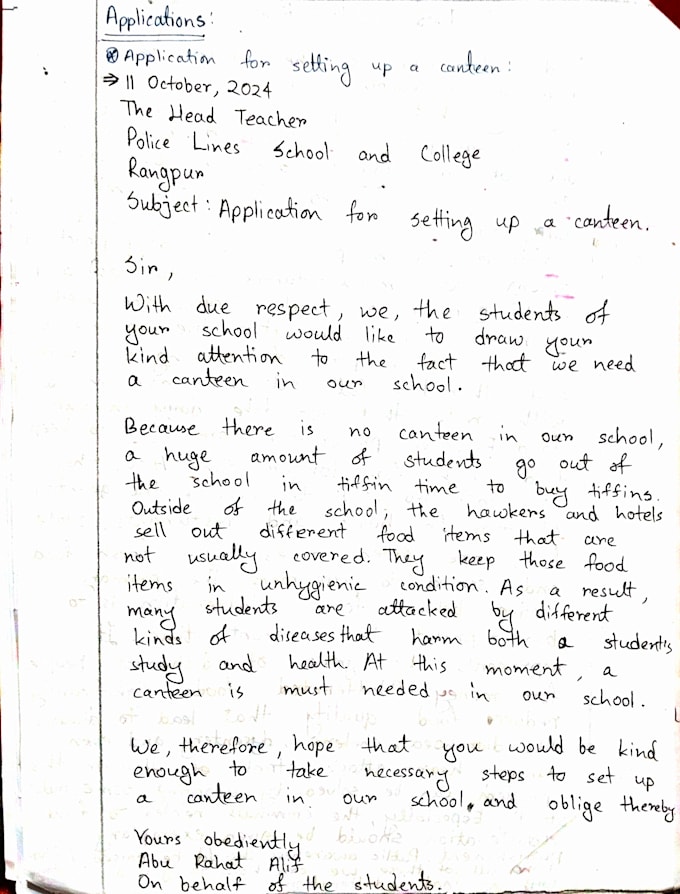 Applications:
⊗ Application for setting up a canteen:
⇒ 11 October, 2024
The Head Teacher
Police Lines School and College
Rangpur
Subject: Application for setting up a canteen.
Sir,
With due respect, we, the students of
your school would like to draw your
kind attention to the fact that we need
a canteen in our school.
Because there is no canteen in our school,
a huge amount of students go out of
the school in tiffin time to buy tiffins.
Outside of the school, the hawkers and hotels
sell out different food items that are
not usually covered. They keep those food
items in unhygienic condition. As a result,
many students are attacked by different
kinds of diseases that harm both a student's
study and health. At this moment, a
canteen is must needed in our school.
We, therefore, hope that you would be kind
enough to take necessary steps to set up
a canteen in our school. and oblige thereby
Yours obediently
Abu Rahat Alif
On behalf of the students.